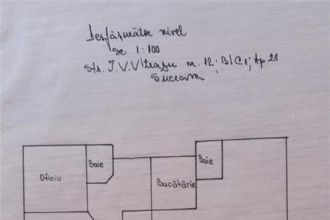 Desfășurător nivel
sc 1:100
Str. I.V.Viteazu nr. 12; B/C1; Ap 21
Suceava
Baie
Baie
Oficiu
Bucătărie